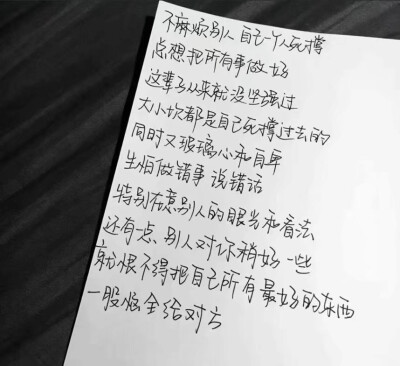 不麻烦别人 自己一个人死撑
总想把所有事做好
这辈子从来就没坚强过
大小坎都是自己死撑过去的
同时又玻璃心和自卑
生怕做错事 说错话
特别在意别人的眼光和看法
还有一点、别人对你稍好一些
就恨不得把自己所有最好的东西
一股脑全给对方